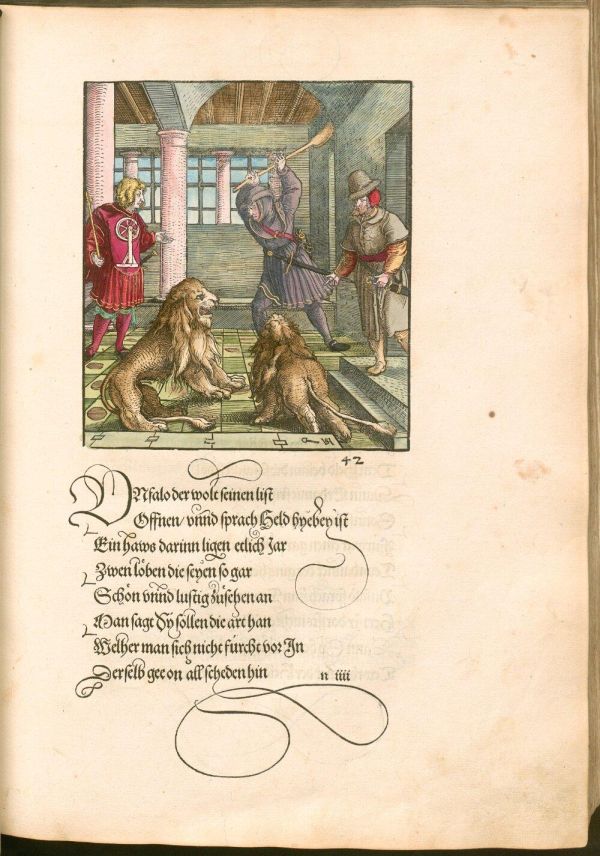 42
VNfalo der wolt ſeinen liſt
Offnen / vnnd ſprach Held hyebey iſt
Ein haws darinn ligen etlich Jar
Zwen löben die ſeyen ſo gar
Schön vnnd luſtig zůſehen an
Man ſagt Sy ſollen die art han
Welher man ſich nicht fürcht vor In
Derſelb gee on all ſcheden hin n iiii